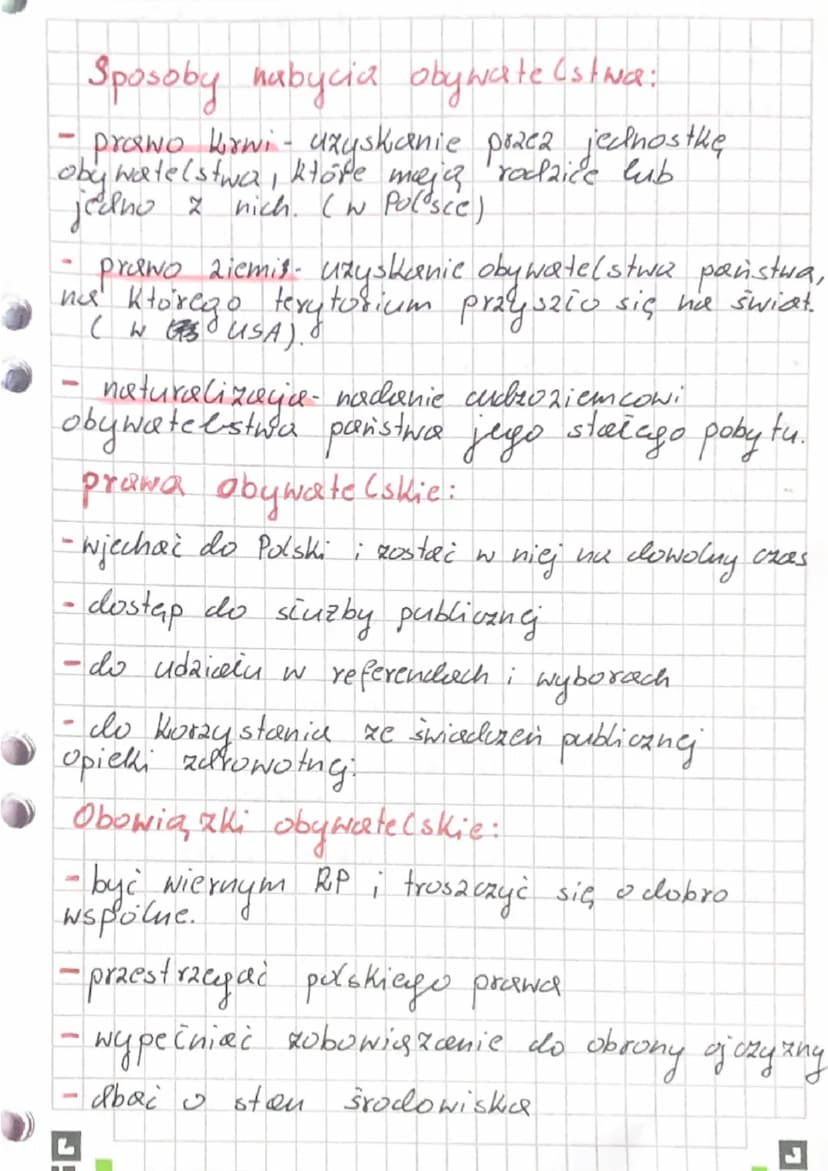 Sposoby nabycia obywatelstwa:
- prawo krwi - uzyskanie przez jednostkę
obywatelstwa, które mają rodzice lub
jedno z nich. (w Polsce)
- prawo ziemi - uzyskanie obywatelstwa państwa,
na którego terytorium przyszło się na świat.
(w USA).
- naturalizacja - nadanie cudzoziemcowi
obywatelstwa państwa jego stałego pobytu.
prawa obywatelskie:
- wjechać do Polski i zostać w niej na dowolny czas
- dostęp do służby publicznej
- do udziału w referendach i wyborach
- do korzystania ze świadczeń publicznej
opieki zdrowotnej.
Obowiązki obywatelskie:
- być wiernym RP i troszczyć się o dobro
wspólne.
- przestrzegać polskiego prawa
- wypełniać zobowiązanie do obrony ojczyzny
- dbać o stan środowiska